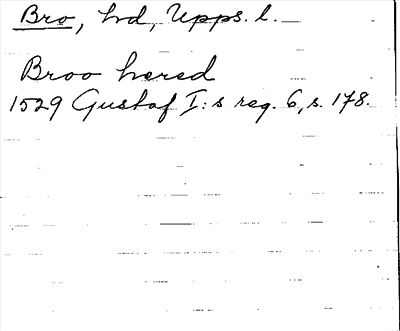 Bro, hd, Upps. l.
Broo hered
1529 Gustaf I:s reg. 6, s. 178.